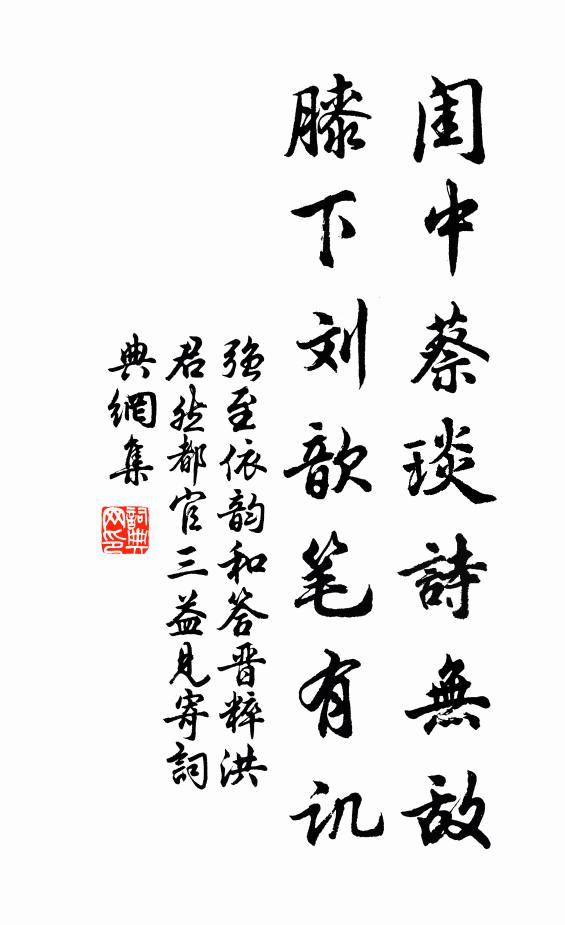 闺中蔡琰詩無敌
膝下刘歆笔有讥
强至依韵和答晋粹洪
君然都官三益见寄詞
典網集
詞典
网印